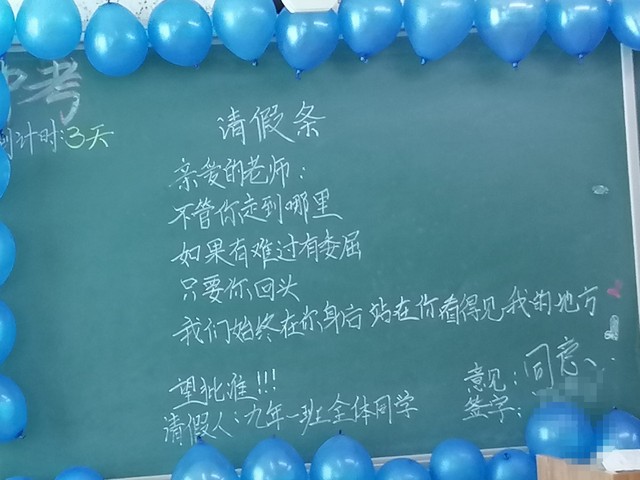 中考
倒计时:3天
请假条
亲爱的老师:
不管你走到哪里
如果有难过有委屈
只要你回头
我们始终在你身后站在你看得见我的地方
望批准!!!
意见:同意
请假人:九年一班全体同学
签字: